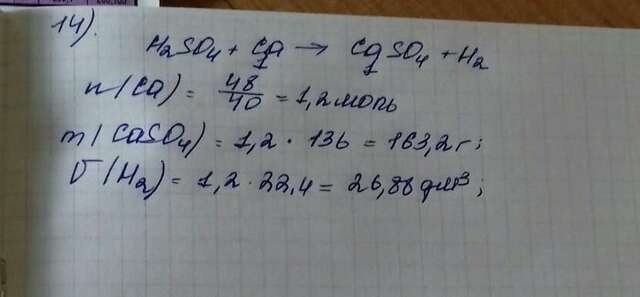 14).
H₂SO₄ + Ca → CaSO₄ + H₂
n(Ca) = 48/40 = 1,2 моль
m(CaSO₄) = 1,2 · 136 = 163,2 г;
V(H₂) = 1,2 · 22,4 = 26,88 дм³;